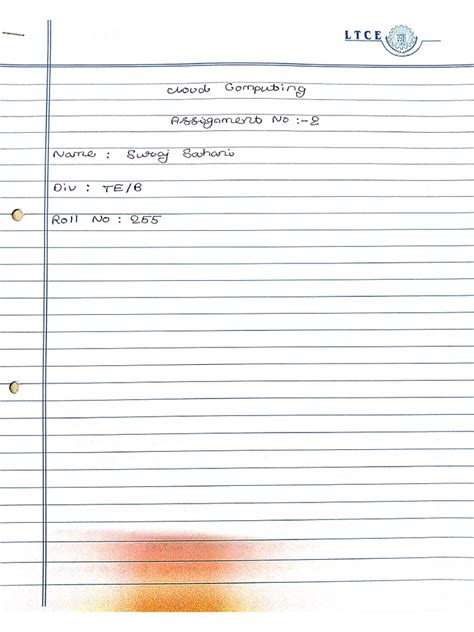 LTCE
Cloud Computing
Assigament No :-2
Name : Suraj Sahani
Div : TE/B
Roll No : 255